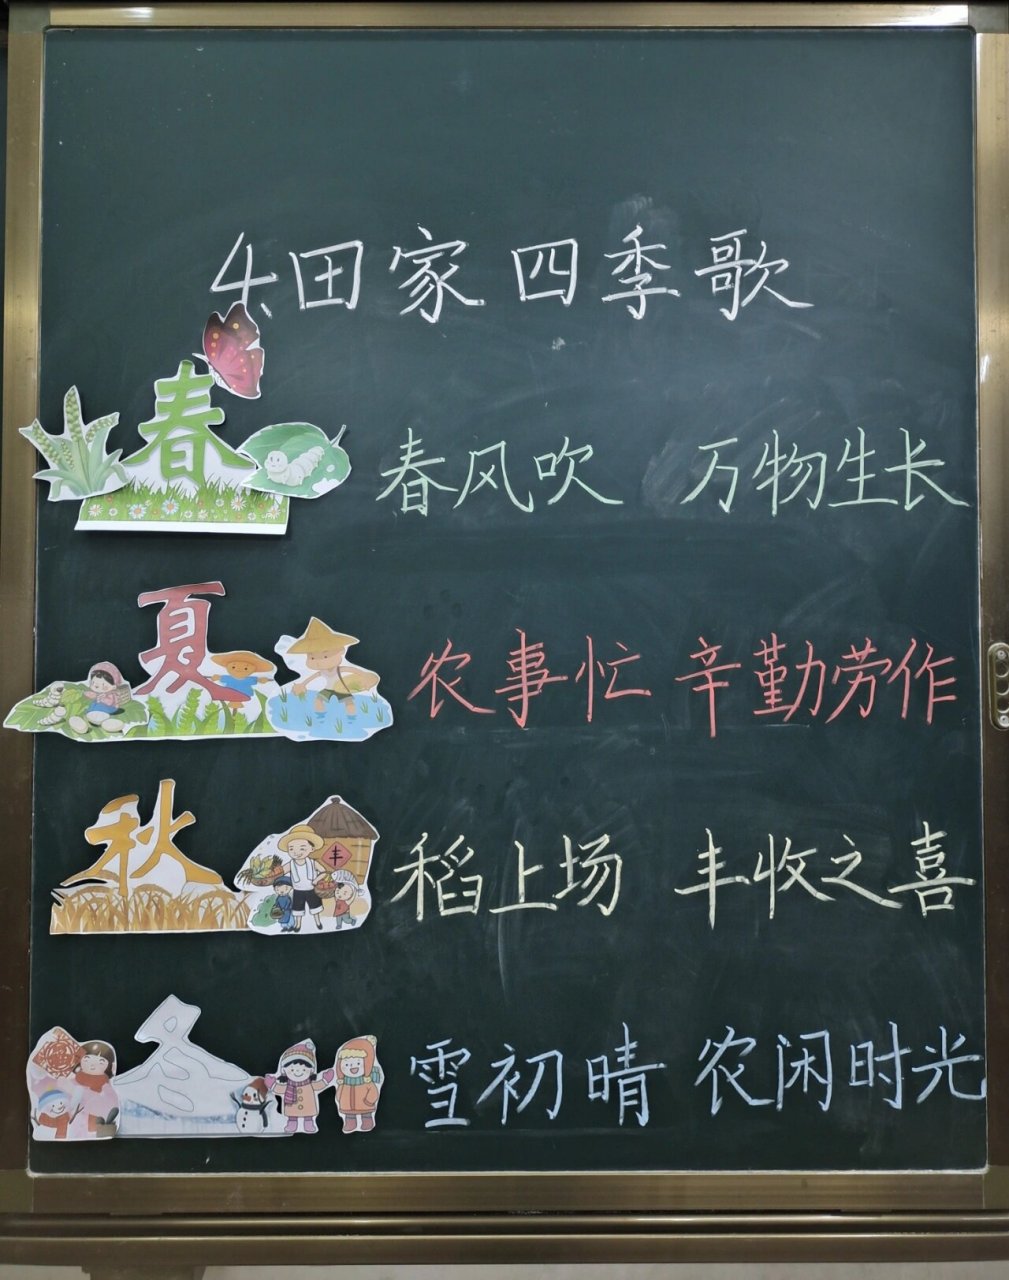 4.田家四季歌
春 春风吹 万物生长
夏 农事忙 辛勤劳作
秋 丰 稻上场 丰收之喜
冬 雪初晴 农闲时光